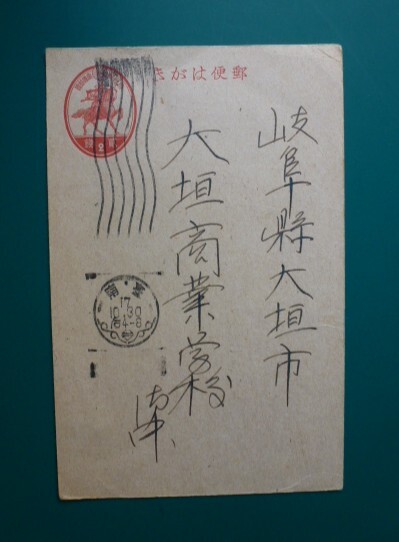 郵便はがき
岐阜縣大垣市
大垣商業学校
御中
17
10 30
后4-8